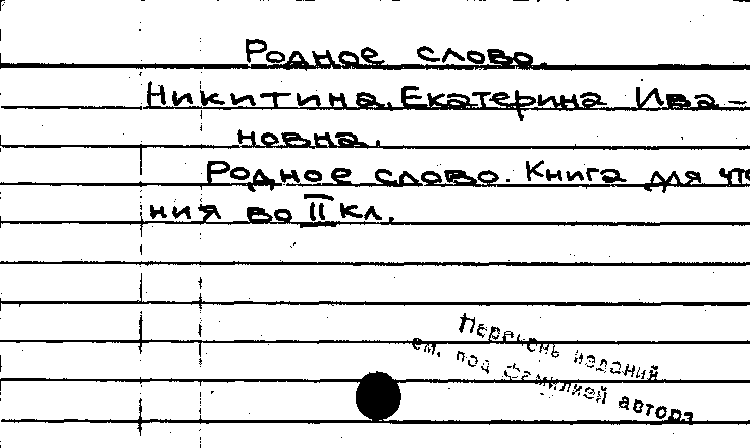 Родное слово.
Никитина, Екатерина Ива-
новна.
Родное слово. Книга для чте
ния во II кл.
Перечень изданий
см. под фамилией автора